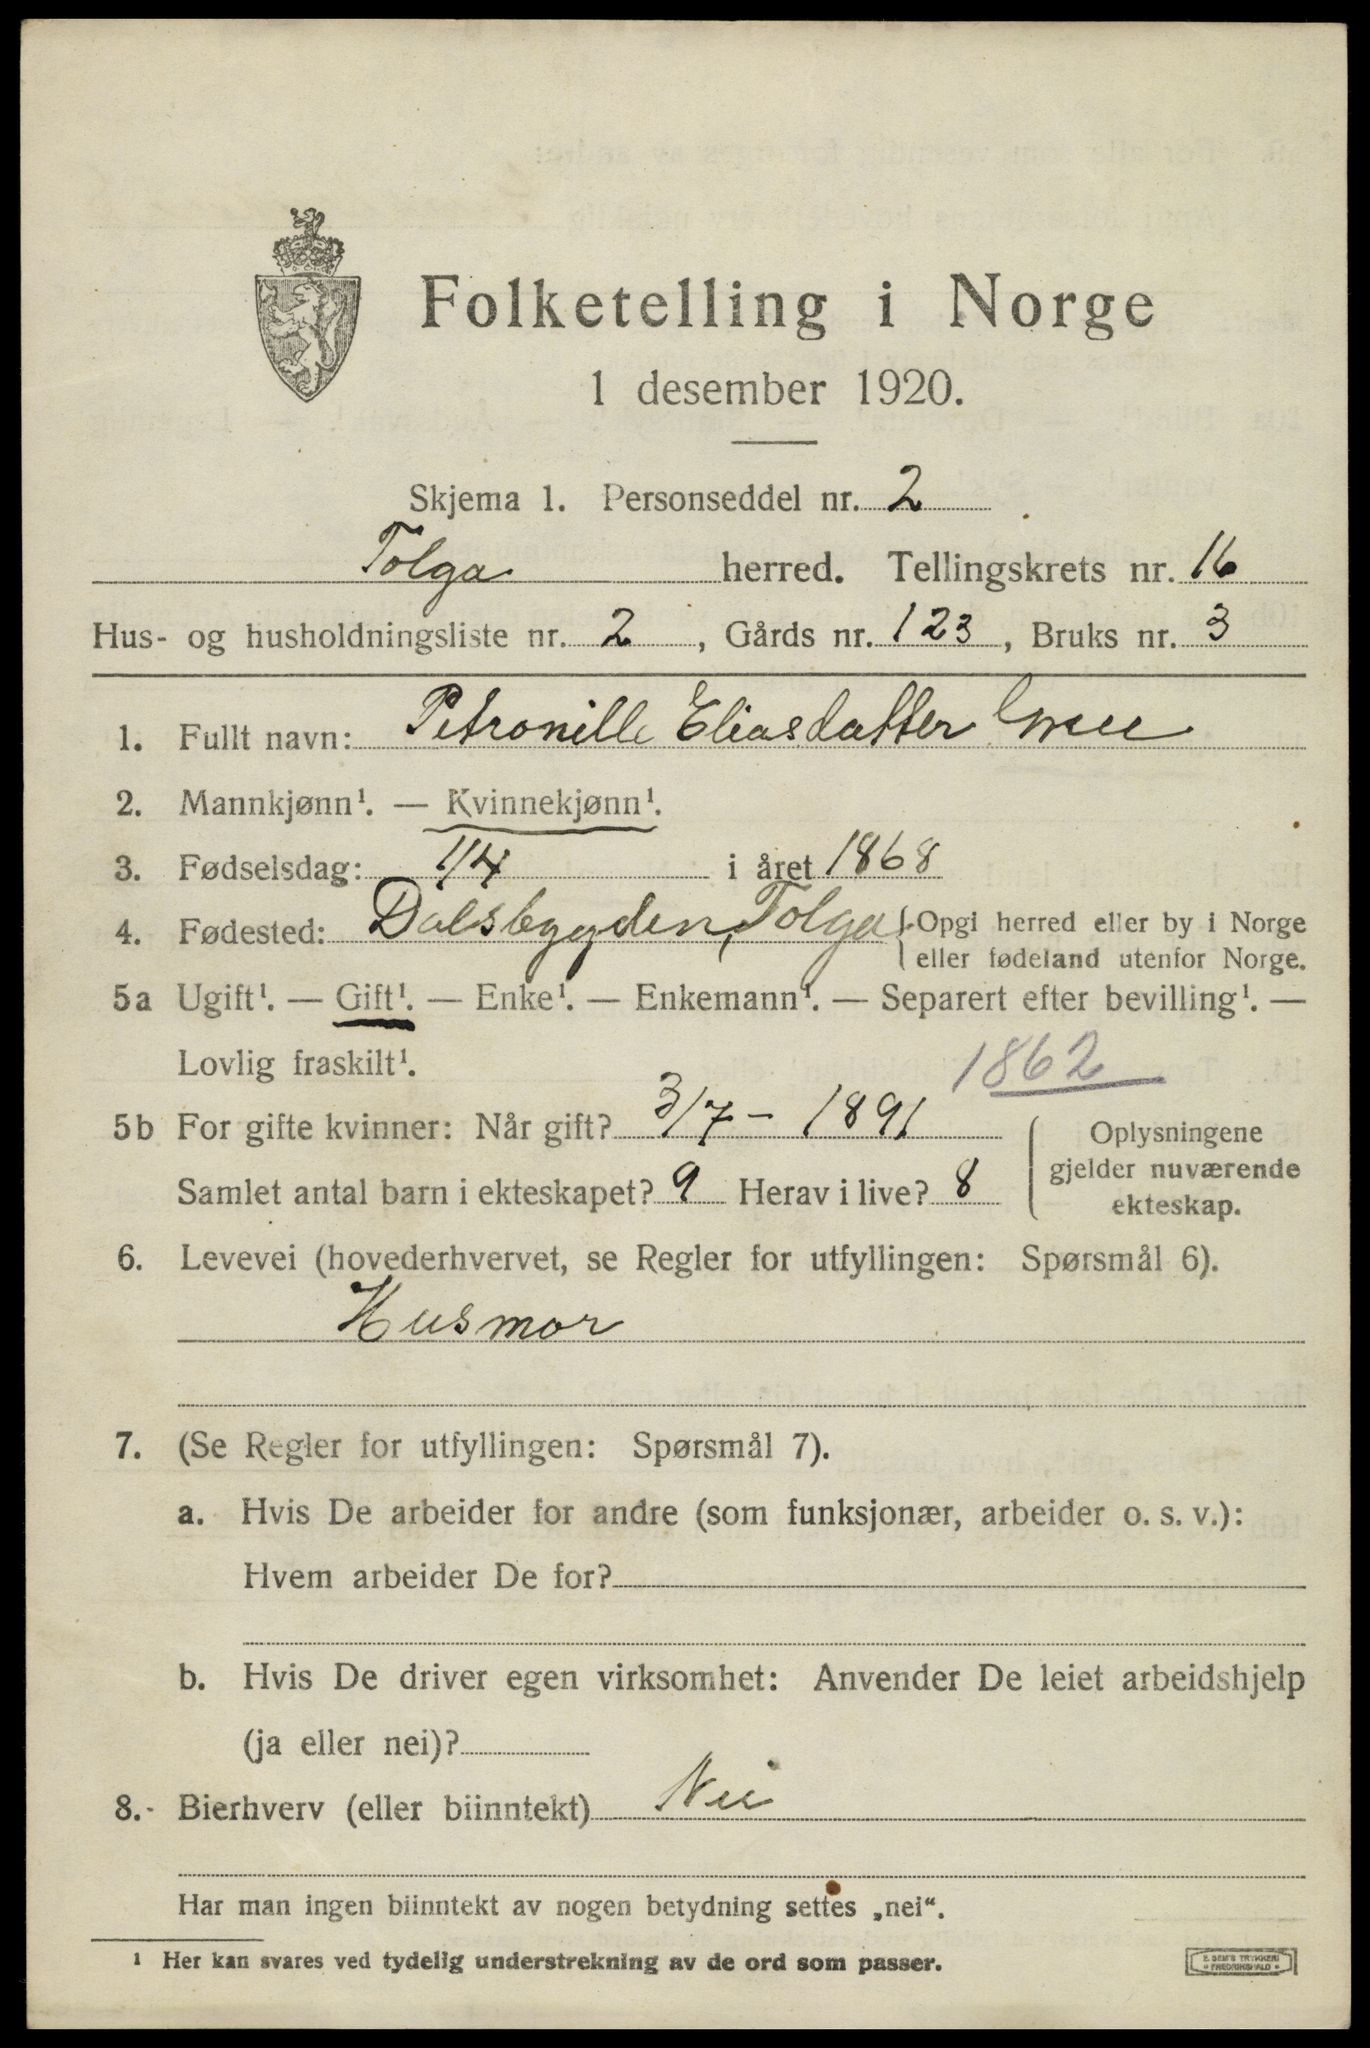 Folketelling i Norge
1 desember 1920.
Skjema 1. Personseddel nr. 2
Tolga herred. Tellingskrets nr. 16
Hus- og husholdningsliste nr. 2, Gårds nr. 123, Bruks nr. 3
1. Fullt navn: Petronille Eliasdatter
2. Mannkjønn¹. — Kvinnekjønn¹.
3. Fødselsdag: 1/4 i året 1868
4. Fødested: Dalsbygden, Tolga { Opgi herred eller by i Norge
eller fødeland utenfor Norge.
5a Ugift¹. — Gift¹. — Enke¹. — Enkemann¹. — Separert efter bevilling¹. —
Lovlig fraskilt¹.
1862
5b For gifte kvinner: Når gift? 3/7 - 1891
Samlet antal barn i ekteskapet? 9 Herav i live? 8
Oplysningene
gjelder nuværende
ekteskap.
6. Levevei (hovederhvervet, se Regler for utfyllingen: Spørsmål 6).
Husmor
7. (Se Regler for utfyllingen: Spørsmål 7).
a. Hvis De arbeider for andre (som funksjonær, arbeider o. s. v.):
Hvem arbeider De for?
b. Hvis De driver egen virksomhet: Anvender De leiet arbeidshjelp
(ja eller nei)?
8. Bierhverv (eller biinntekt) Nei
Har man ingen biinntekt av nogen betydning settes „nei“.
¹ Her kan svares ved tydelig understrekning av de ord som passer.
E. SEM'S TRYKKERI
FREDRIKSHALD